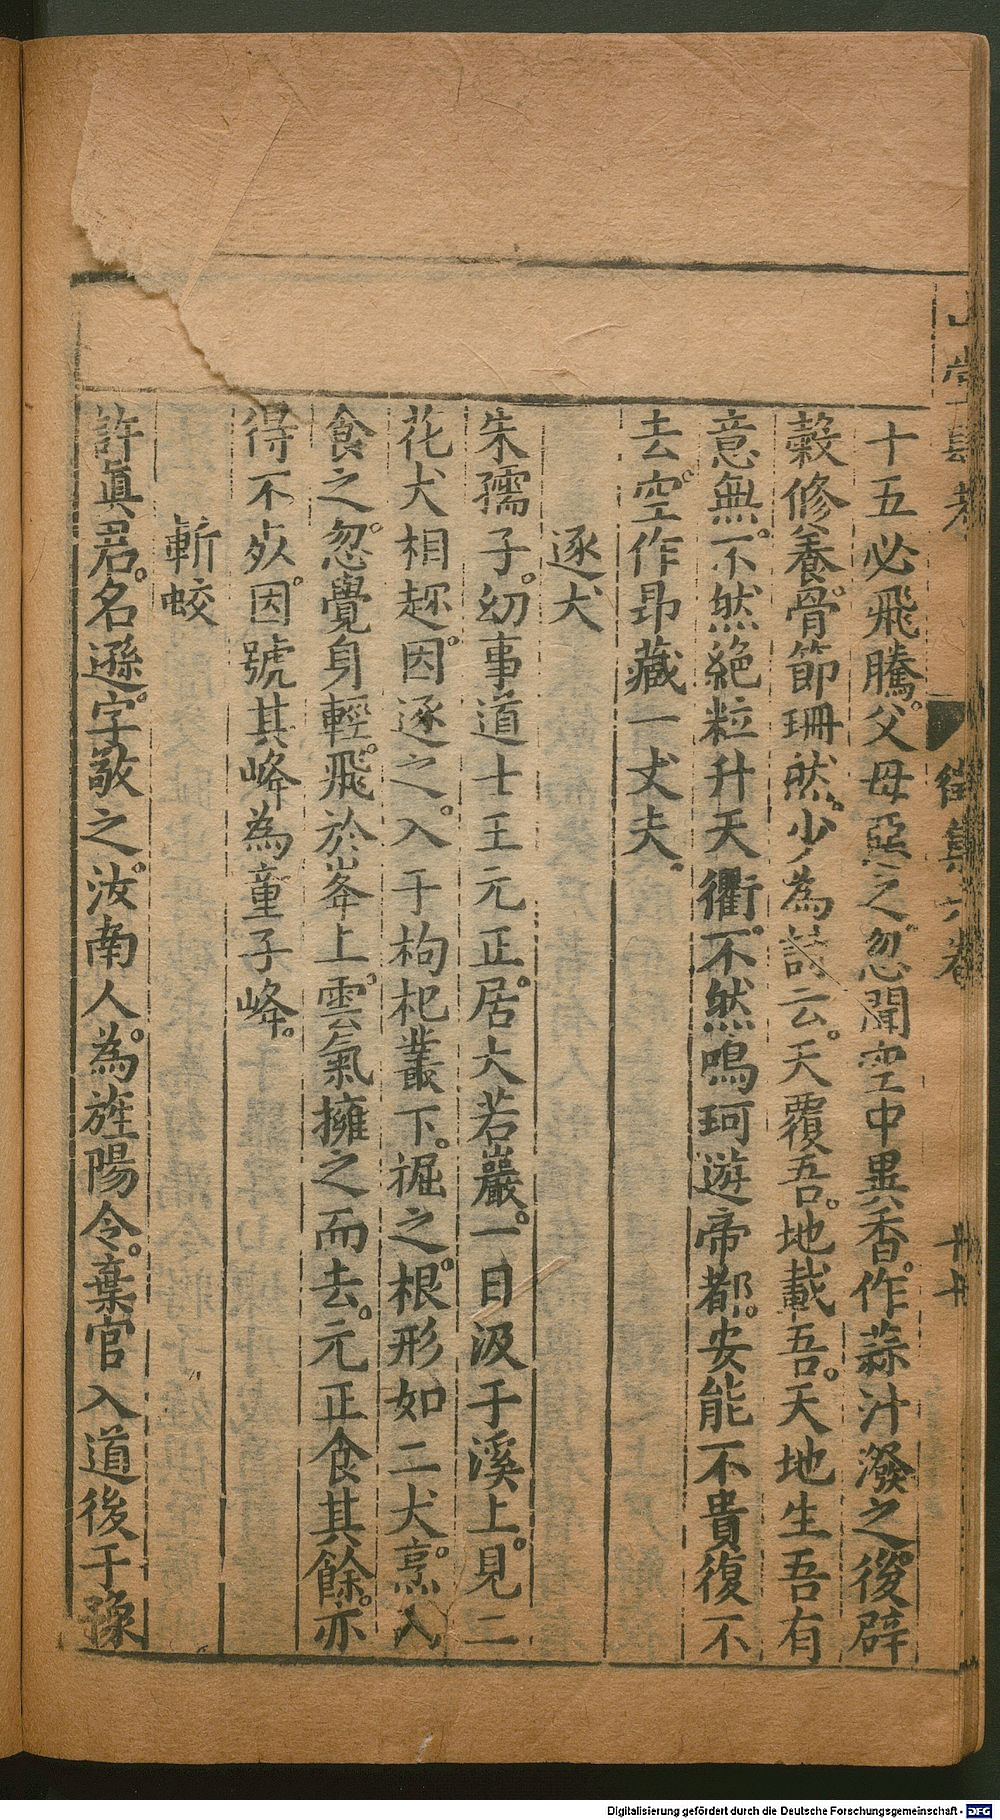 十五必飛騰。父母惡之。忽聞空中異香。作蒜汁潑之。後辟
穀修養。骨節珊然。少為詩云。天覆吾。地載吾。天地生吾有
意無。不然絶粒升天衢。不然鳴珂遊帝都。安能不貴復不
去。空作昻藏一丈夫。
逐犬
朱孺子。幼事道士王元正。居大若巖。一日汲于溪上。見二
花犬相趂。因逐之。入于枸杞叢下。掘之。根形如二犬。烹。入
食之。忽覺身輕。飛於峯上。雲氣擁之而去。元正食其餘。亦
得不死。因號其峰為童子峰。
斬蛟
許眞君。名遜。字敬之。汝南人。為旌陽令。棄官入道後于豫
山堂肆考
徵集六卷
Digitalisierung gefördert durch die Deutsche Forschungsgemeinschaft - DFG